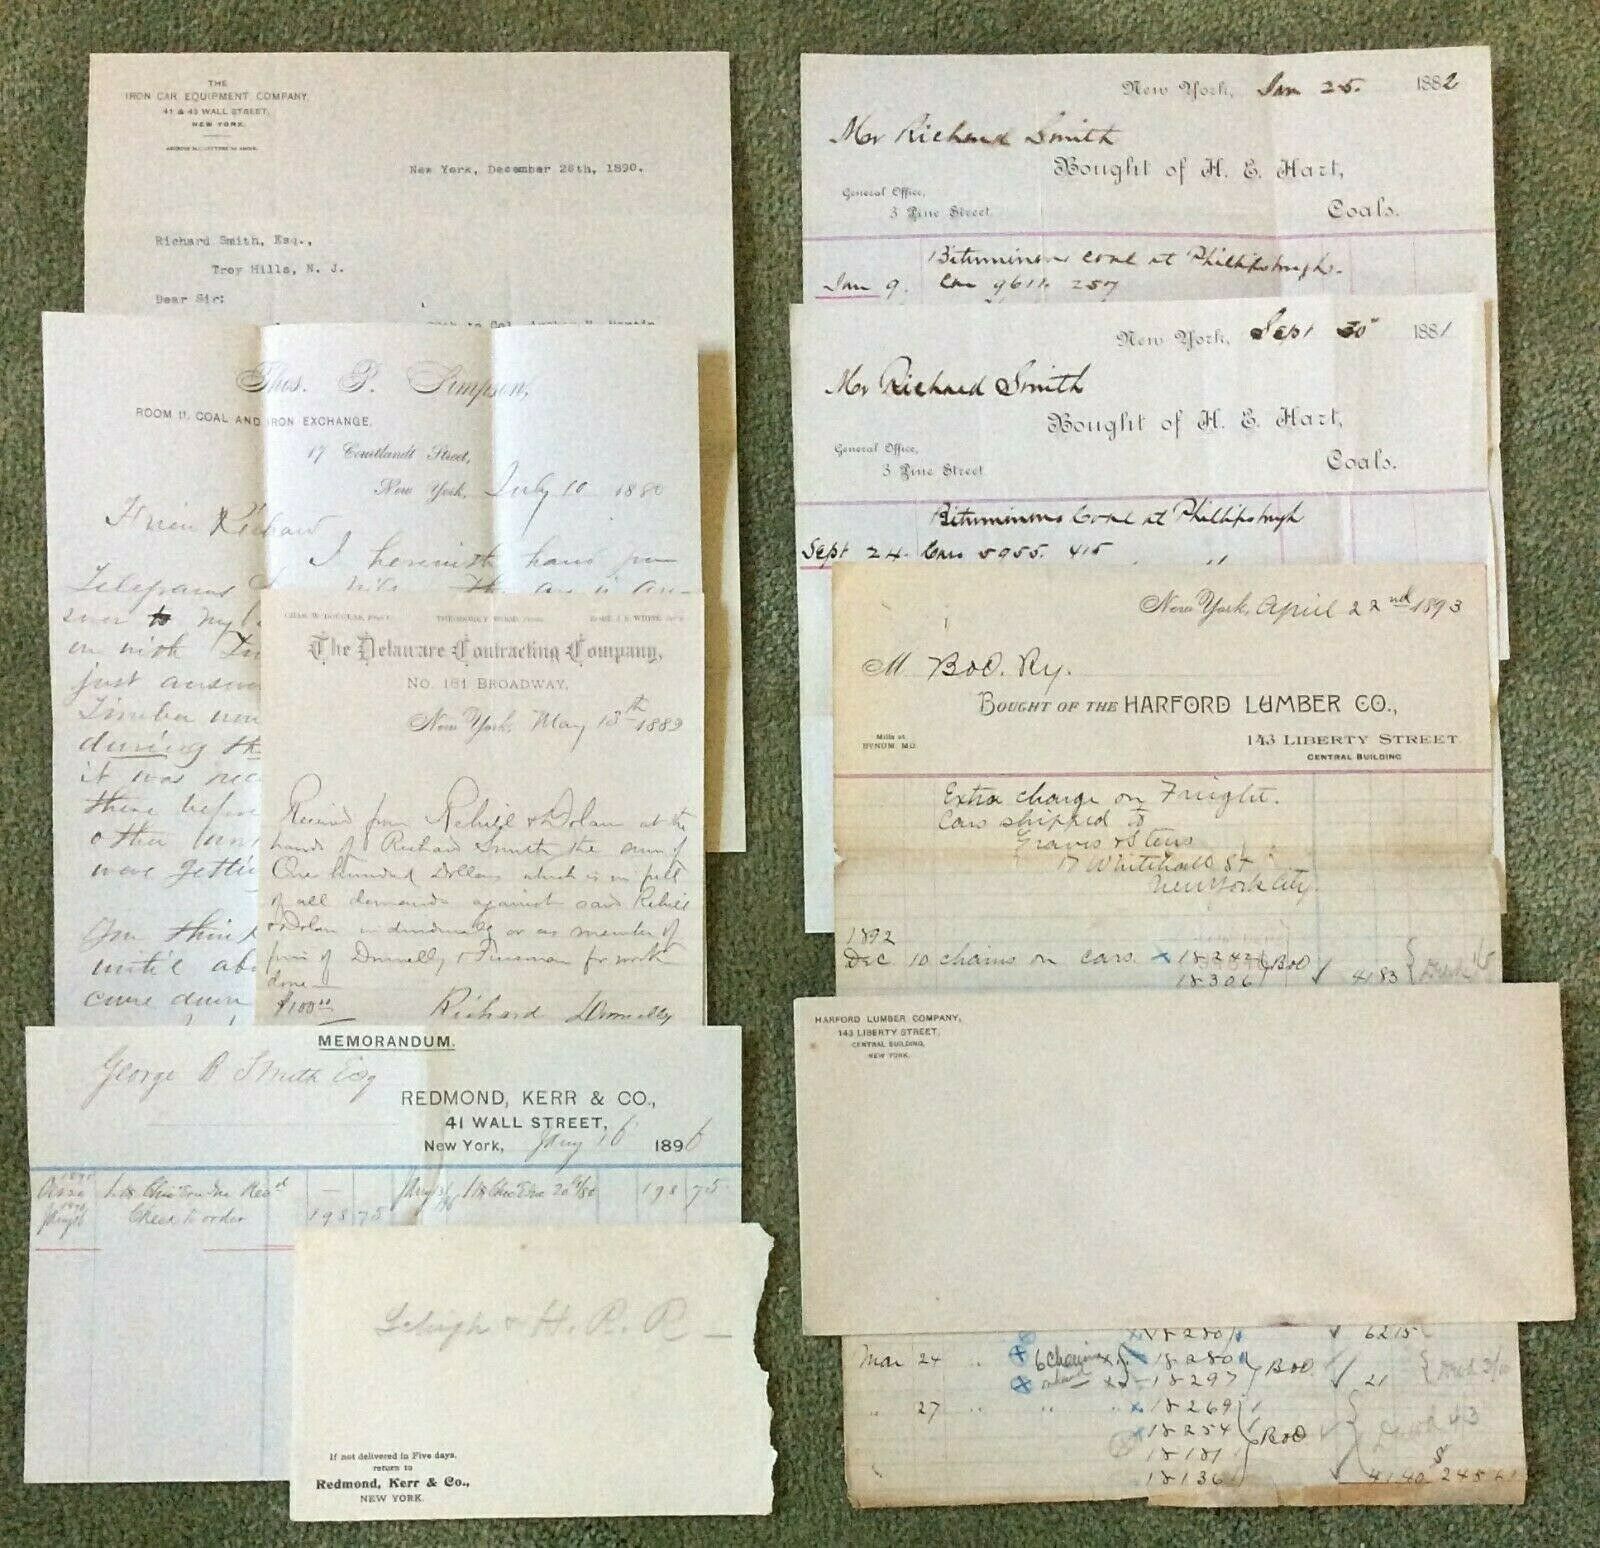 THE
IRON CAR EQUIPMENT COMPANY,
41 & 43 WALL STREET,
NEW YORK.
New York, December 26th, 1890.
Richard Smith, Esq.,
Troy Hills, N. J.
Dear Sir:
Thos. P. Simpson,
ROOM 11, COAL AND IRON EXCHANGE.
17 Courtlandt Street,
New York, July 10 1880
Richard
I herewith hand you
Telegrams
just answe
Timber
during th
it was rec
there before
other
were getti
until ab
came down
CHAS. W. DOUGLAS, PRES'T
The Delaware Contracting Company,
No. 161 BROADWAY,
New York, May 13th 1889
Received from Rehill & Dolan at the
hands of Richard Smith the sum of
One hundred Dollars which is in full
of all demands against said Rehill
& Dolan individually or as member of
firm of Donnelly & for work
done
$100.00
Richard Donnelly
MEMORANDUM.
George B Smith Esq
REDMOND, KERR & CO.,
41 WALL STREET,
New York, Jany 16 1896
198 75
Check to order
198 75
Lehigh & H. R. R
If not delivered in Five days,
return to
Redmond, Kerr & Co.,
NEW YORK.
New York, Jan 25. 1882
Mr Richard Smith
Bought of H. E. Hart,
General Office,
3 Pine Street
Coals.
Bituminous Coal at Phillipsburgh.
Jan 9. Car 9611. 257
New York, Sept 30" 1881
Mr Richard Smith
Bought of H. E. Hart,
General Office,
3 Pine Street
Coals.
Bituminous Coal at Phillipsburgh
Sept 24. Cars 5955. 415
New York, April 22nd 1893
M B&O. Ry.
BOUGHT OF THE HARFORD LUMBER CO.,
Mills at
BYNUM. MD.
143 LIBERTY STREET
CENTRAL BUILDING
Extra charge on Freight.
Cars shipped to
17 Whitehall St
New York City.
1892
Dec 10 chains on cars. x 18242 B&O 4183
18306
HARFORD LUMBER COMPANY,
143 LIBERTY STREET,
CENTRAL BUILDING,
NEW YORK.
18280 6215
Mar 24 " 6 chains 18280
18297 B&O 21
" 27 " " 18269
18254 B&O
18181
18136 4140 $ 248